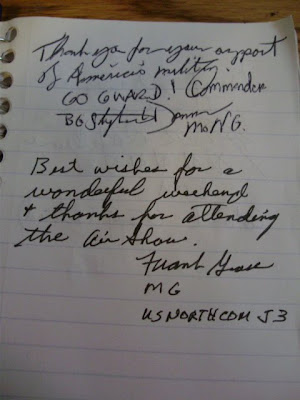 Thank you for your support
of America's military.
GO GUARD! Commander
BG Stephen Danner
MoNG.
Best wishes for a
wonderful weekend
& thanks for attending
the air show.
Frank Grass
MG
USNORTHCOM J3